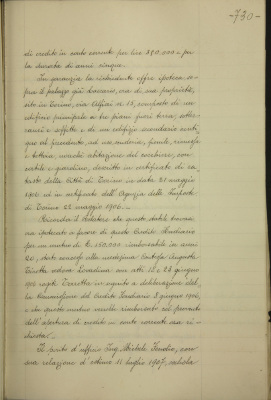 -730-
di credito in conto corrente per lire 350.000 e per
la durata di anni cinque.
In garanzia la richiedente offre ipoteca so-
pra il palazzo già Luserna, ora di sua proprietà,
sito in Torino, via Alfieri n. 15, composto di un
edificio principale a tre piani fuori terra, sotter-
ranei e soffitte, e di un edificio secondario
al precedente, ad uso scuderia, fienile, rimessa
e tettoia, nonché abitazione del cocchiere, con
cortile e giardino, descritto in certificato di ca-
tasto della Città di Torino in data 21 maggio
1906 ed in certificato dell'Agenzia delle Imposte
di Torino 22 maggio 1906.
Ricorda il Relatore che questo stabile trovasi
già ipotecato a favore di questo Credito Fondiario
per un mutuo di L. 150.000 rimborsabile in anni
stato concesso alla medesima Contessa Augusta
vedova con atti 12 e 28 giugno
1906 rogati Torretta in seguito a deliberazione del-
la Commissione del Credito Fondiario 8 giugno 1906,
e che questo mutuo verrebbe rimborsato col provento
dell'apertura di credito in conto corrente ora ri-
chiesta.
Il perito d'ufficio Ing. Michele Fenolio, con
sua relazione d'estimo 11 luglio 1907,